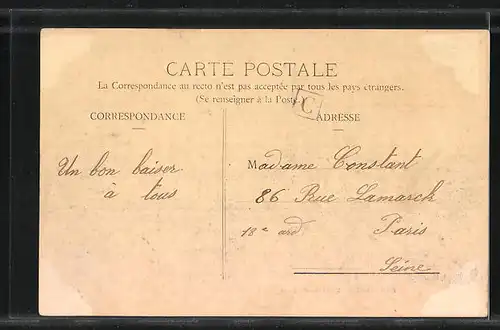 CARTE POSTALE
La Correspondance au recto n'est pas acceptée par tous les pays étrangers.
(Se renseigner à la Poste.)
C
CORRESPONDANCE
Un bon baiser
à tous
ADRESSE
Madame Constant
86 Rue Lamarck
18e ard Paris
Seine